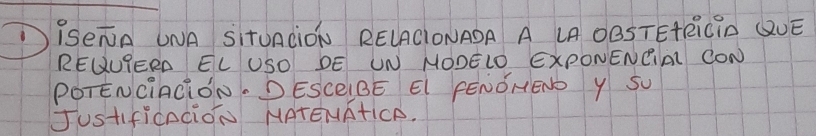 ① DiSEÑA UNA SITUACIÓN RELACIONADA A LA OBSTETRICIA QUE
REQUIERA EL USO DE UN MODELO EXPONENCIAL CON
POTENCIACIÓN. DESCRIBE EL FENÓMENO Y SU
JUSTIFICACIÓN MATEMÁTICA.